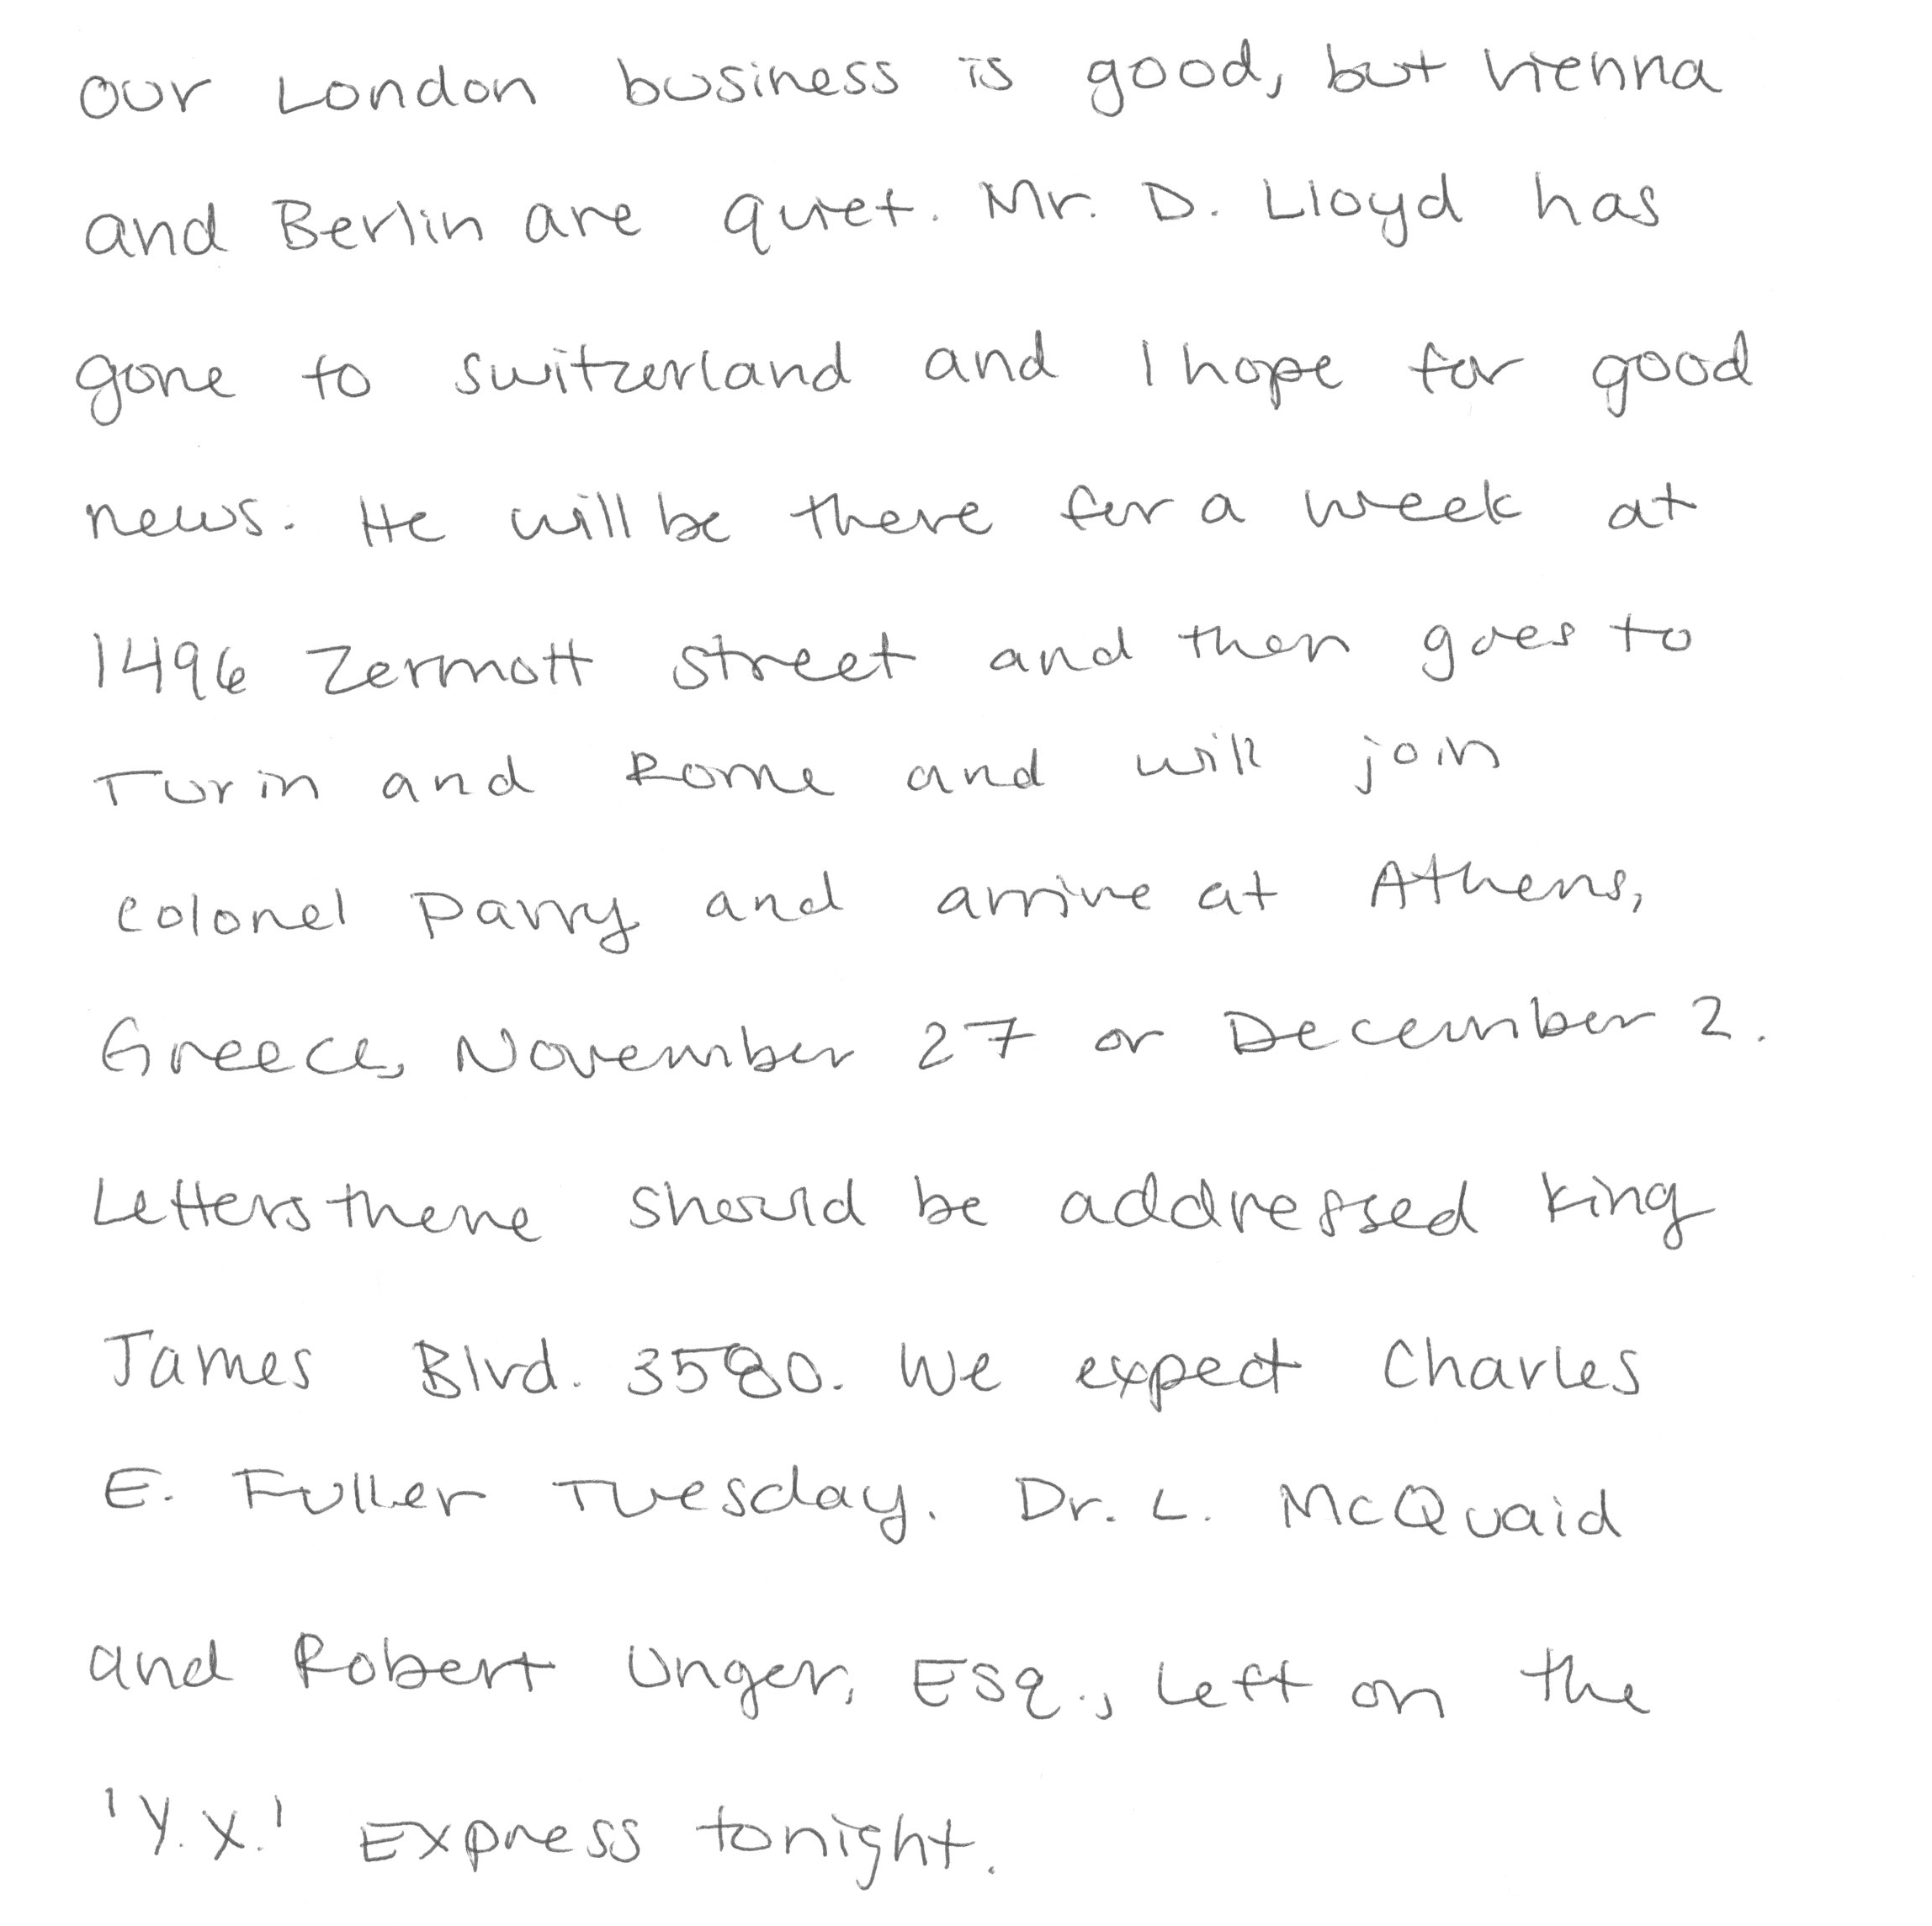 our London business is good, but Vienna
and Berlin are quiet. Mr. D. Lloyd has
gone to switzerland and I hope for good
news. He will be there for a week at
1496 Zermott street and then goes to
Turin and Rome and will join
colonel Parry and arrive at Athens,
Greece, November 27 or December 2.
Letters there should be addressed King
James Blvd. 3580. We expect Charles
E. Fuller Tuesday. Dr. L. McQuaid
and Robert Unger, Esq., left on the
'Y.X.' Express tonight.